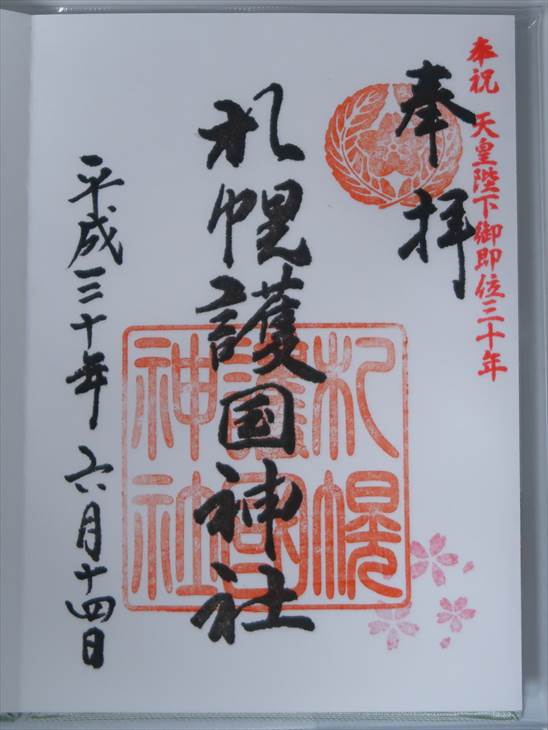 奉祝 天皇陛下御即位三十年
奉拝
札幌護国神社
札幌
護國
神社
平成三十年 六月十四日